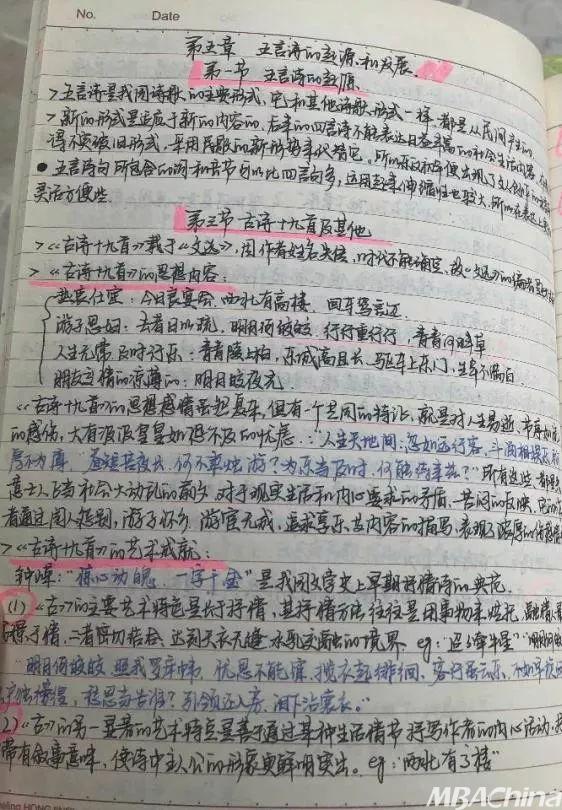 No.
Date
第五章 五言诗的起源和发展.
第一节 五言诗的起源.
>五言诗是我国诗歌的主要形式,它和其他诗歌形式一样,都是从民间产生的.
>新的形式是适应于新的内容的,后来的四言诗不能表达日益丰富的社会生活内容,
得不突破旧形式,采用民歌的新形势来代替它,所以东汉初年便出现了文人创作的
•五言诗句所包含的词和音节可以比四言句多,运用起来伸缩性也较大,所以在表达上
灵活方便些.
第三节 古诗十九首及其他
>《古诗十九首》载于《文选》,因作者姓名失传,时代不能确定,故《文选》的编者
>《古诗十九首》的思想内容:
热衷仕宦:今日良宴会 西北有高楼 回车驾言迈
游子思妇:去者日以疏,明月何皎皎,行行重行行,青青河畔草
人生无常 及时行乐:青青陵上柏,东城高且长,驱车上东门,生年不满百
朋友交情的凉薄的:明月皎夜光
《古诗十九首》的思想感情虽很复杂,但有一个共同的特征,就是对人生易逝、节序如流
的感伤,大有汲汲皇皇如恐不及的忧虑.:"人生天地间,忽如远行客,斗酒相娱乐,
厚不为薄""昼短苦夜长,何不秉烛游?为乐当及时,何能待来兹?"所有这些,都是
意士人在当社会大动乱的前夕 对于现实生活和内心要求的矛盾、苦闷的反映,它
者通过闺人怨别,游子怀乡,游宦无成,追求享乐等内容的描写,表现了浓厚的伤感情
>《古诗十九首》的艺术成就:
钟嵘:"惊心动魄,一字千金"是我国文学史上早期抒情诗的典范.
(1)《古》的主要艺术特色是长于抒情,其抒情方法往往是用事物来烘托,融情
景于情,二者密切结合 达到天衣无缝 水乳交融的境界. eg:"迢迢牵牛星""明月何皎
"明月何皎皎,照我罗床帏,忧愁不能寐,揽衣起徘徊,客行虽云乐,不如早旋
户独彷徨,愁思当告谁?引领还入房,泪下沾裳衣."
2)《古》的另一显著的艺术特点是善于通过某种生活情节抒写作者的内心活动,
带有叙事意味,使诗中主人公的形象更鲜明突出. eg:"西北有高楼"
MBAChina